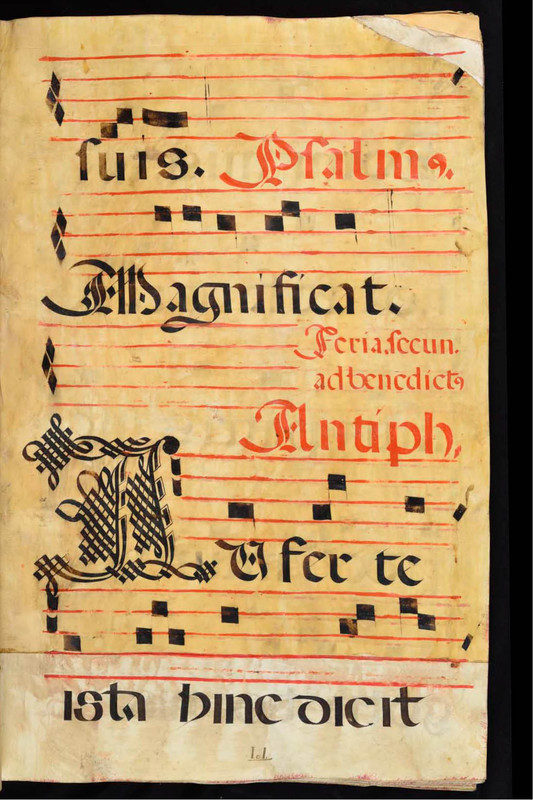 suis. Psalmꝰ.
Magnificat.
Feria.secun.
ad benedictꝰ
Antiph,
AUfer te
ista hinc dicit